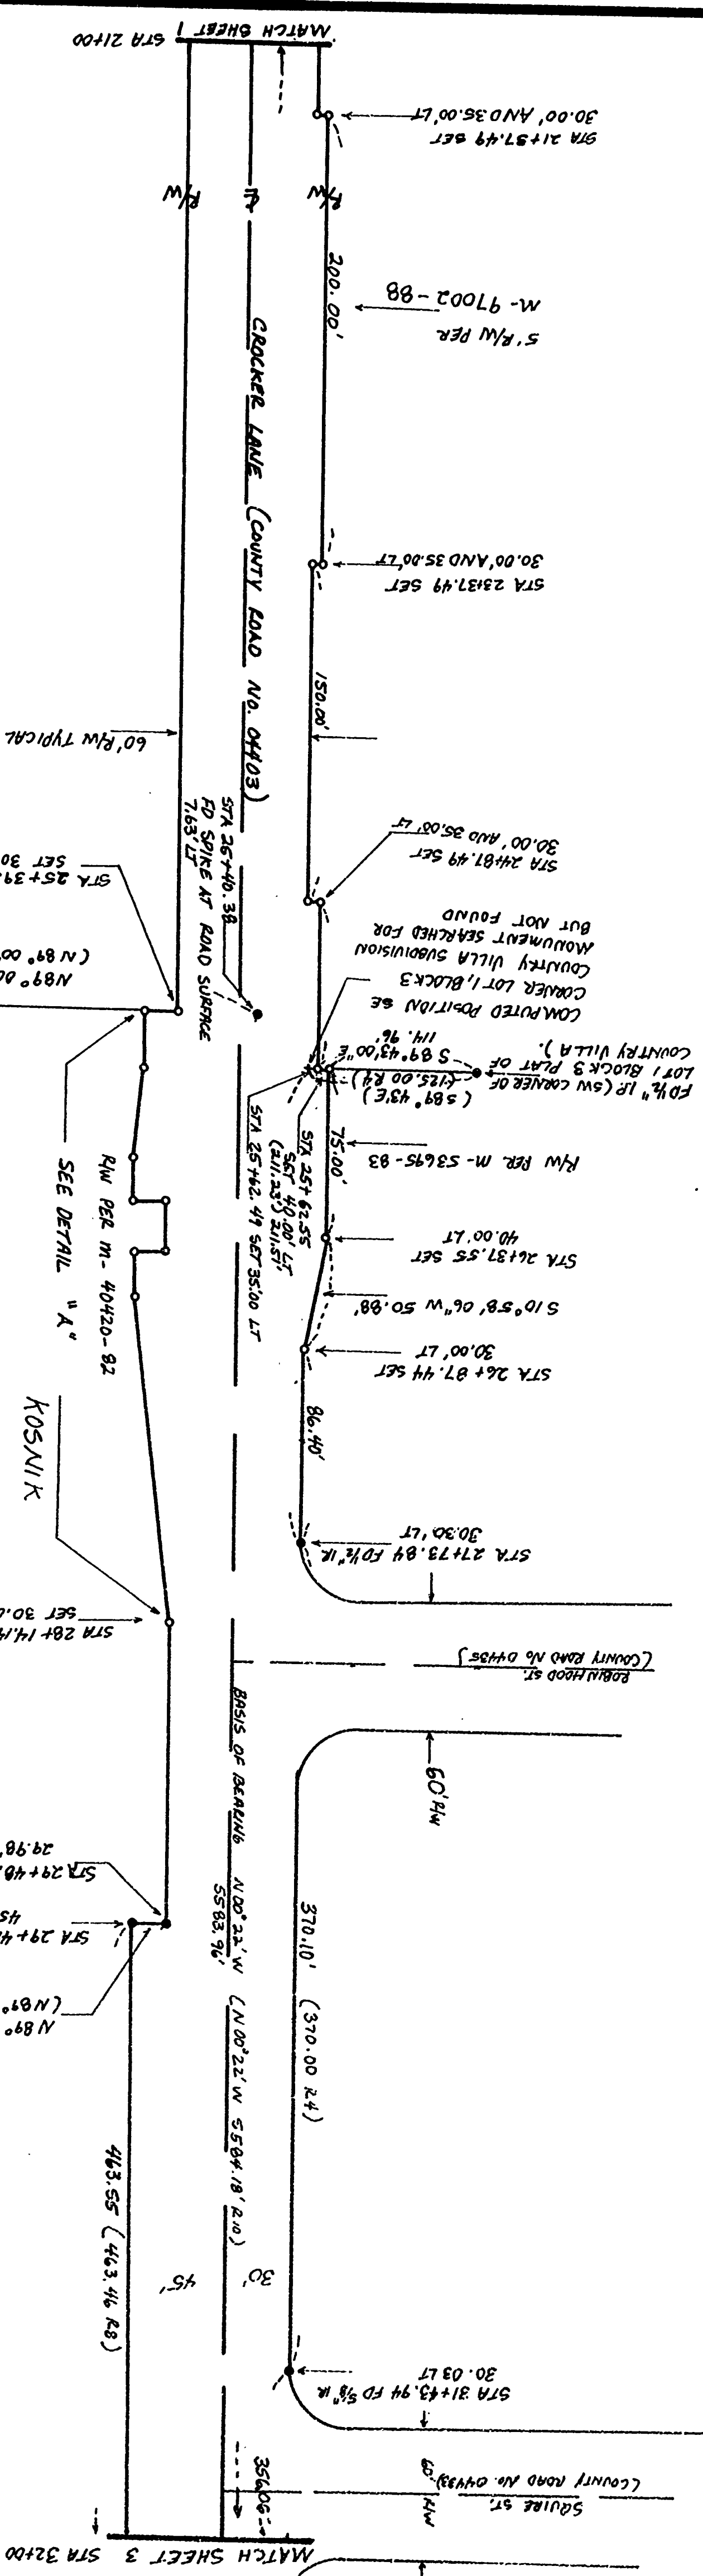 MATCH SHEET 1 STA 21+00
STA 21+37.49 SET
30.00' AND 35.00' LT
R/W
℄
R/W
200.00'
5' R/W PER
M-97002-88
CROCKER LANE (COUNTY ROAD NO. 04403)
STA 23+37.49 SET
30.00' AND 35.00' LT
150.00'
60' R/W TYPICAL
STA 24+87.49 SET
30.00' AND 35.00' LT
STA 25+40.38
FD SPIKE AT ROAD SURFACE
7.63' LT
STA 25+39.
SET 30
N89° 00
(N 89° 00'
COMPUTED POSITION SE
CORNER LOT 1, BLOCK 3
COUNTRY VILLA SUBDIVISION
MONUMENT SEARCHED FOR
BUT NOT FOUND
FD ½" I.P. (SW CORNER OF
LOT 1 BLOCK 3 PLAT OF
COUNTRY VILLA).
(S89° 43'E)
(125.00 R4)
S 89° 43' 00" E
114.96'
STA 25+62.49 SET 35.00 LT
STA 25+62.55
SET 40.00' LT
(211.23') 211.51'
75.00'
R/W PER M-53695-83
SEE DETAIL "A"
R/W PER M-40420-82
STA 26+37.55 SET
40.00' LT
S 10° 58' 06" W 50.88'
STA 26+87.44 SET
30.00' LT
86.40'
KOSNIK
STA 27+73.84 FD ½" IR
30.30' LT
STA 28+14.14
SET 30.0
ROBIN HOOD ST.
(COUNTY ROAD No 04435)
60' R/W
BASIS OF BEARING N00°22'W (N00°22'W 5584.18' R10)
5583.96'
370.10' (370.00 R4)
STA 29+48.
29.98'
STA 29+4
45
N 89°
(N89°
463.55 (463.46 R8)
45'
30'
STA 31+43.94 FD ⅝" IR
30.03 LT
SQUIRE ST.
(COUNTY ROAD NO. 04433)
60' R/W
356.06
MATCH SHEET 3 STA 32+00